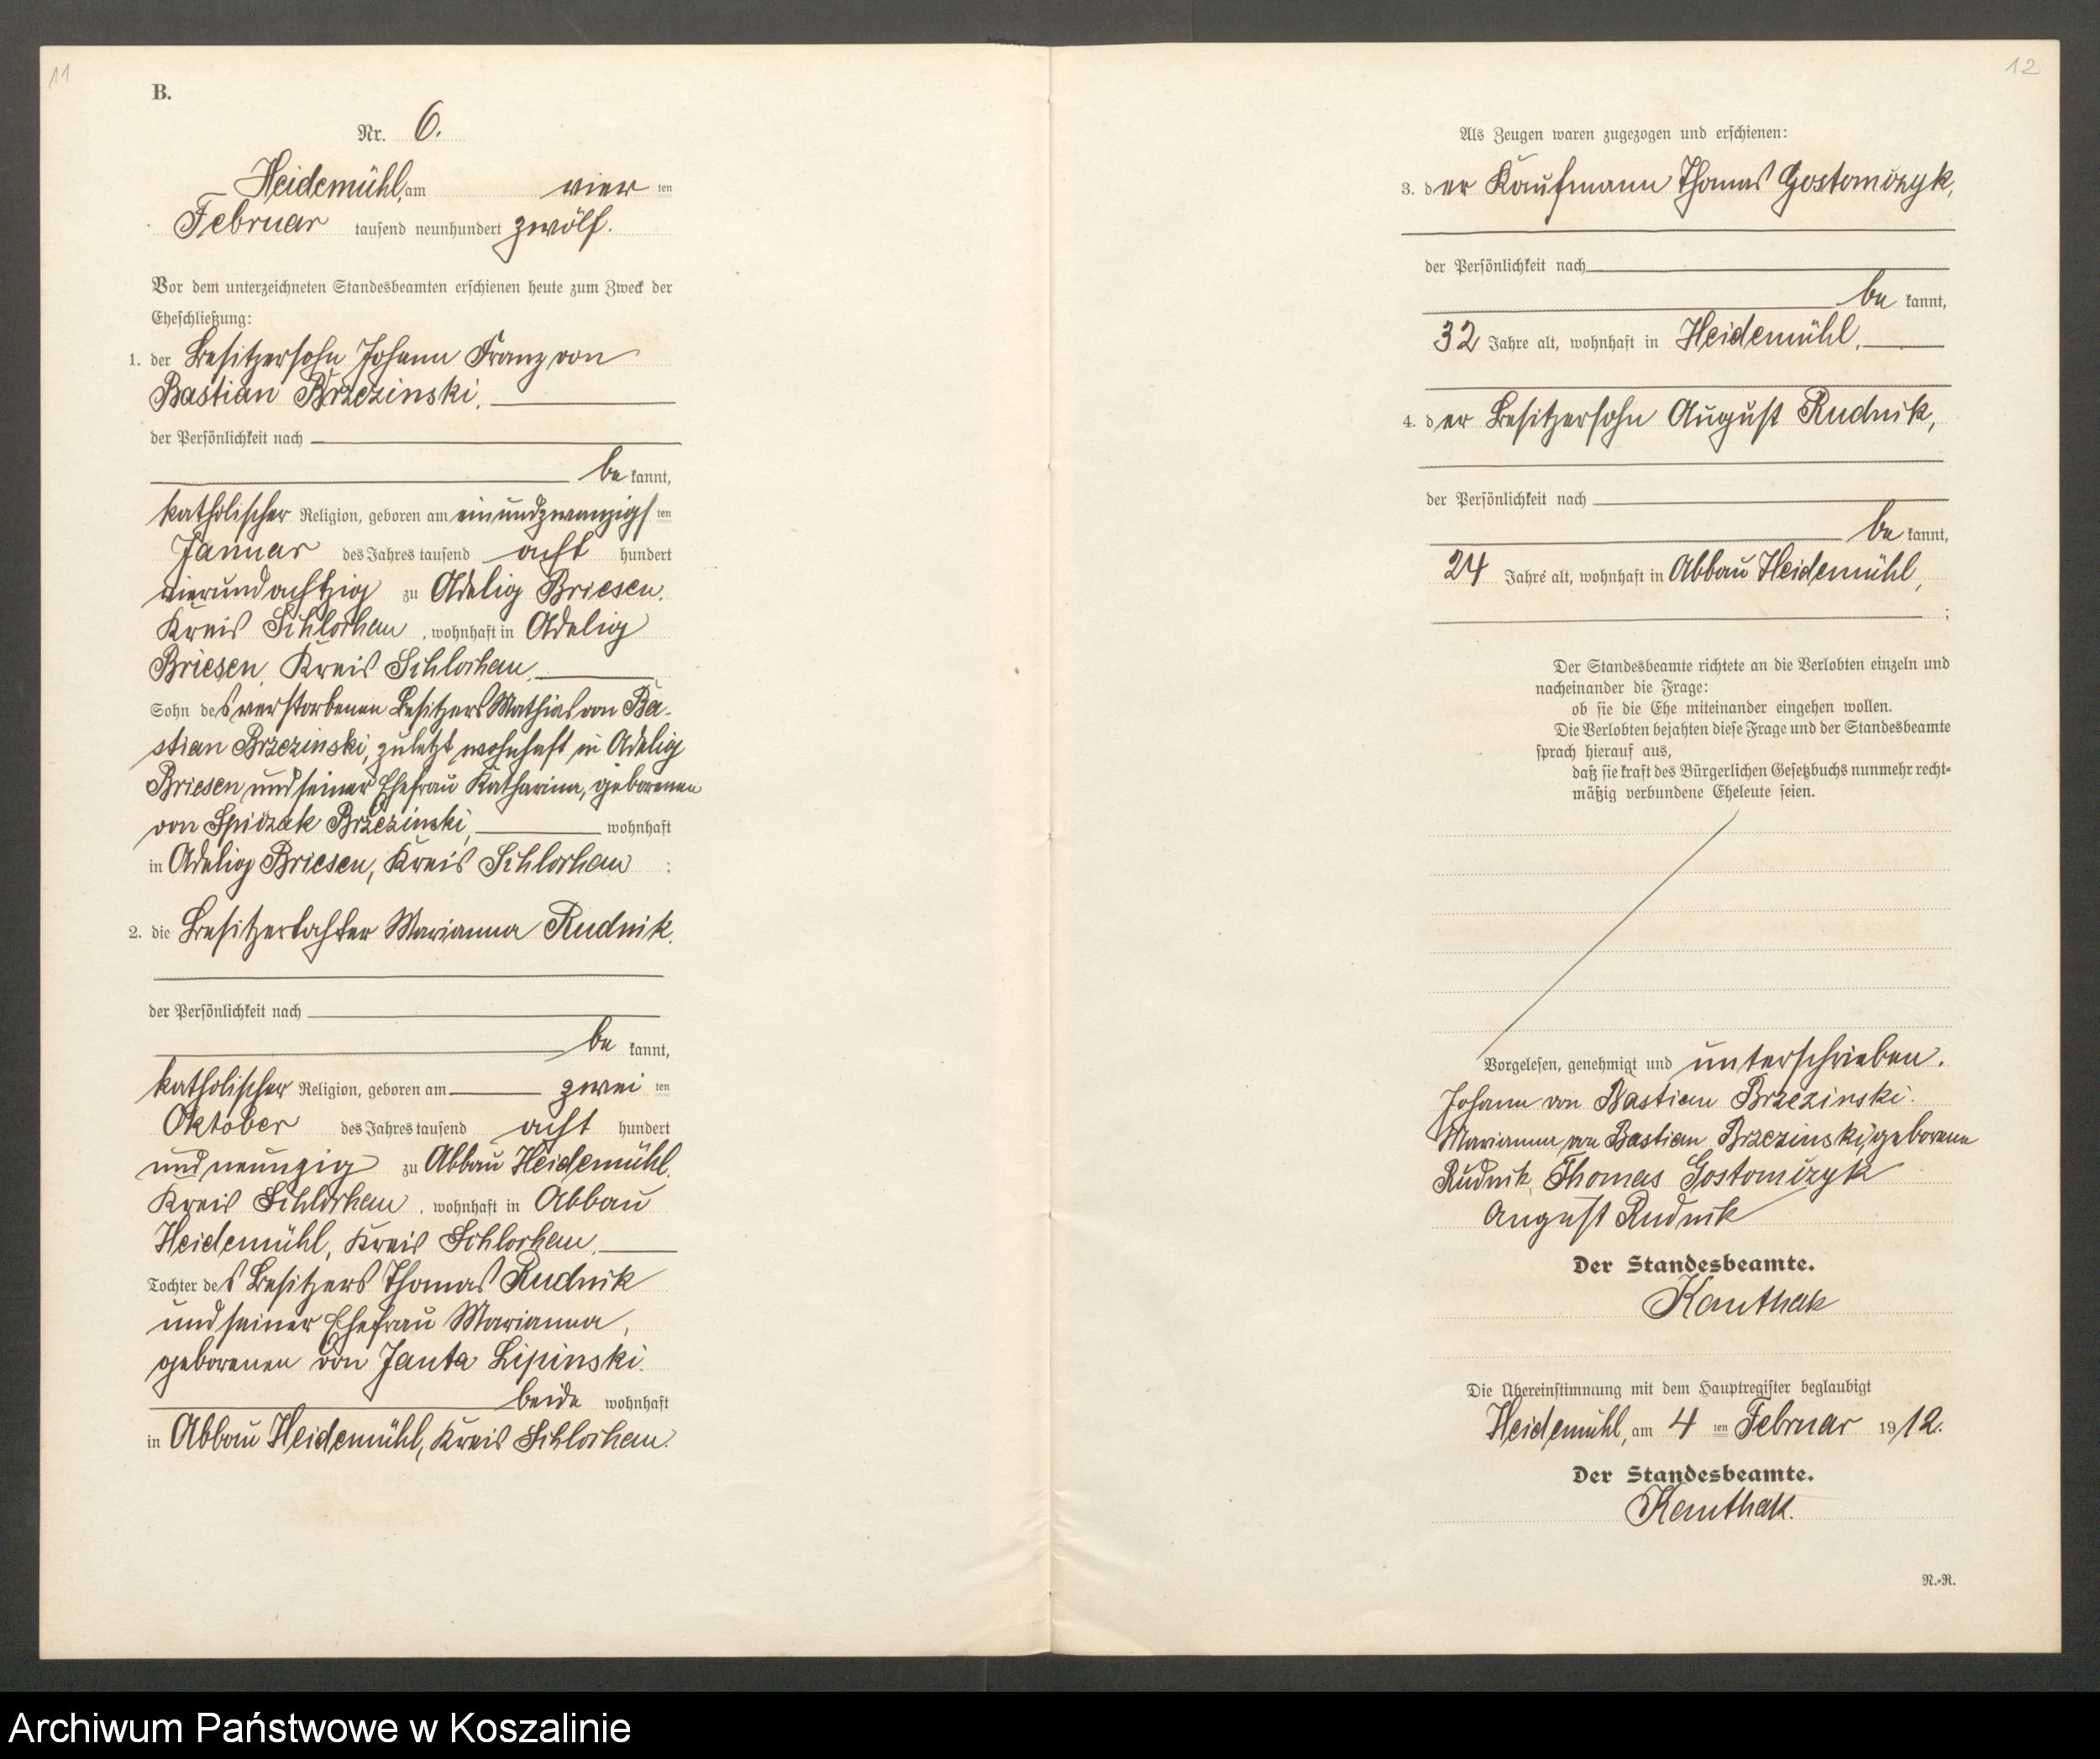 11
B.
Nr. 6.
Heidemühl, am vier ten
Februar tausend neunhundert zwölf.
Vor dem unterzeichneten Standesbeamten erschienen heute zum Zweck der
Eheschließung:
1. der Besitzersohn Johann Franz von
Bastian Brzezinski,
der Persönlichkeit nach
be kannt,
katholischer Religion, geboren am einundzwanzigs ten
Januar des Jahres tausend acht hundert
vierundachtzig zu Adelig Briesen,
Kreis Schlochau, wohnhaft in Adelig
Briesen, Kreis Schlochau,
Sohn des verstorbenen Besitzers Mathias von Ba-
stian Brzezinski, zuletzt wohnhaft in Adelig
Briesen und seiner Ehefrau Katharina, geborenen
von Spiczak Brzezinski, wohnhaft
in Adelig Briesen, Kreis Schlochau ;
2. die Besitzertochter Marianna Rudnik,
der Persönlichkeit nach
be kannt,
katholischer Religion, geboren am zwei ten
Oktober des Jahres tausend acht hundert
und neunzig zu Abbau Heidemühl,
Kreis Schlochau, wohnhaft in Abbau
Heidemühl, Kreis Schlochau,
Tochter des Besitzers Thomas Rudnik
und seiner Ehefrau Marianna,
geborenen von Janta Lipinski,
beide wohnhaft
in Abbau Heidemühl, Kreis Schlochau.
12
Als Zeugen waren zugezogen und erschienen:
3. der Kaufmann Thomas Gostomczyk,
der Persönlichkeit nach
be kannt,
32 Jahre alt, wohnhaft in Heidemühl,
4. der Besitzersohn August Rudnik,
der Persönlichkeit nach
be kannt,
24 Jahre alt, wohnhaft in Abbau Heidemühl,
;
Der Standesbeamte richtete an die Verlobten einzeln und
nacheinander die Frage:
ob sie die Ehe miteinander eingehen wollen.
Die Verlobten bejahten diese Frage und der Standesbeamte
sprach hierauf aus,
daß sie kraft des Bürgerlichen Gesetzbuchs nunmehr recht-
mäßig verbundene Eheleute seien.
Vorgelesen, genehmigt und unterschrieben.
Johann von Bastian Brzezinski.
Marianna von Bastian Brzezinski, geborene
Rudnik, Thomas Gostomczyk
August Rudnik
Der Standesbeamte.
Kauthak
Die Übereinstimmung mit dem Hauptregister beglaubigt
Heidemühl, am 4 ten Februar 1912.
Der Standesbeamte.
Kauthak.
N.-R.
Archiwum Państwowe w Koszalinie